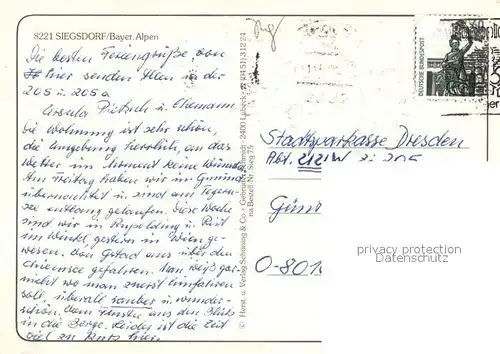 8221 SIEGSDORF/Bayer. Alpen
Die besten Feriengrüße von
hier senden Ihnen in der
205 u. 205a
Ursula Pietsch u. Ehemann
Die Wohnung ist sehr schön,
die Umgebung herrlich, an das
Wetter im Moment keine Wünsche
Am Freitag haben wir in Gmund
übernachtet u. sind am Tegern-
see entlang gelaufen. Diese Woche
sind wir in Ruhpolding u. Reit
im Winkl, gestern in Wien ge-
wesen. Von Gstad aus über den
Chiemsee gefahren. Man weiß gar
nicht wo man zuerst hinfahren
soll, überall sauber u. wunder-
schön. Vom Fenster aus den Blick
in die Berge. Leider ist die Zeit
viel zu kurz hier
© Herst. u. Verlag Schöning & Co · Gebrüder Schmidt · 2400 Lübeck
na Bestell-Nr. Seg 75
60
DEUTSCHE BUNDESPOST
Stadtsparkasse Dresden
Abt. 2121W Zi. 205
O-801
privacy protection
Datenschutz